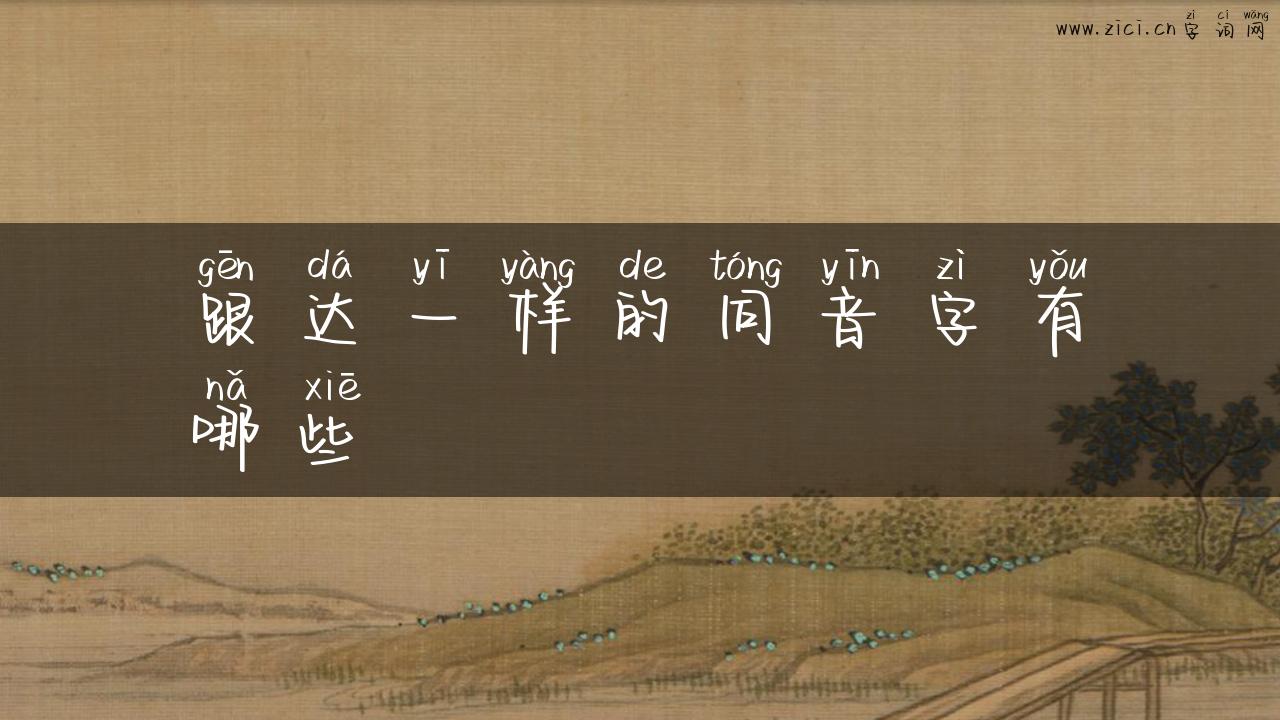 zì cí wǎng
www.zici.cn字词网
gēn dá yī yàng de tóng yīn zì yǒu
跟达一样的同音字有
nǎ xiē
哪些